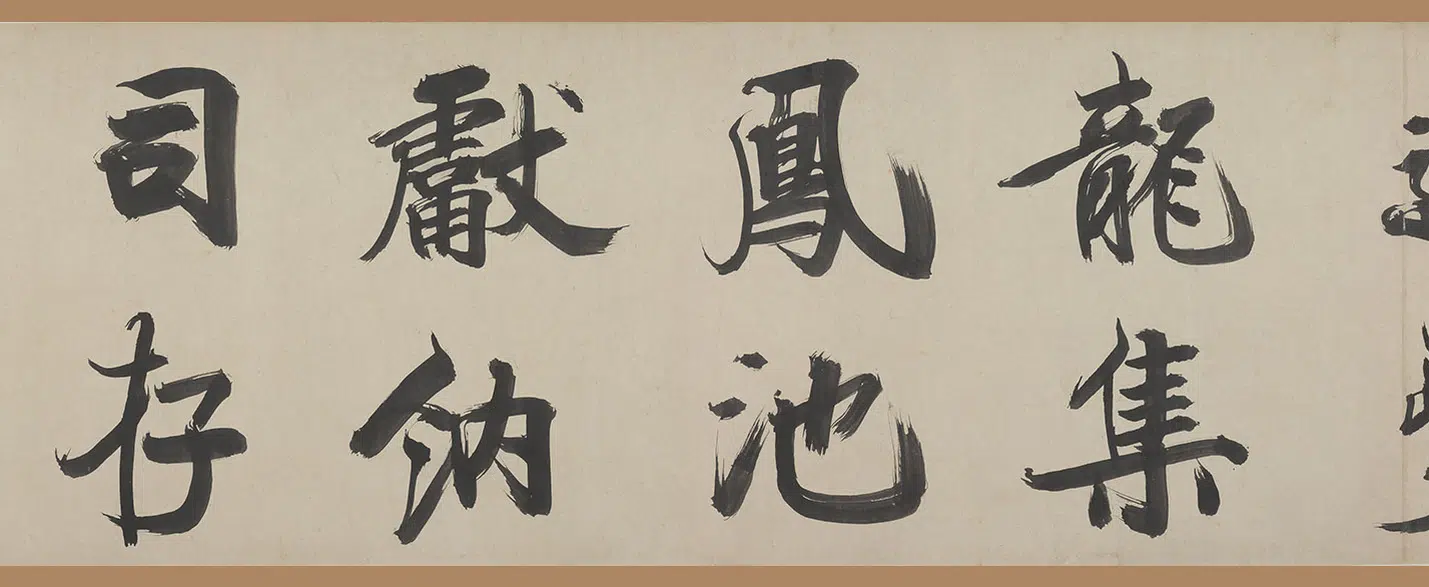 龍集
鳳池
獻納
司存